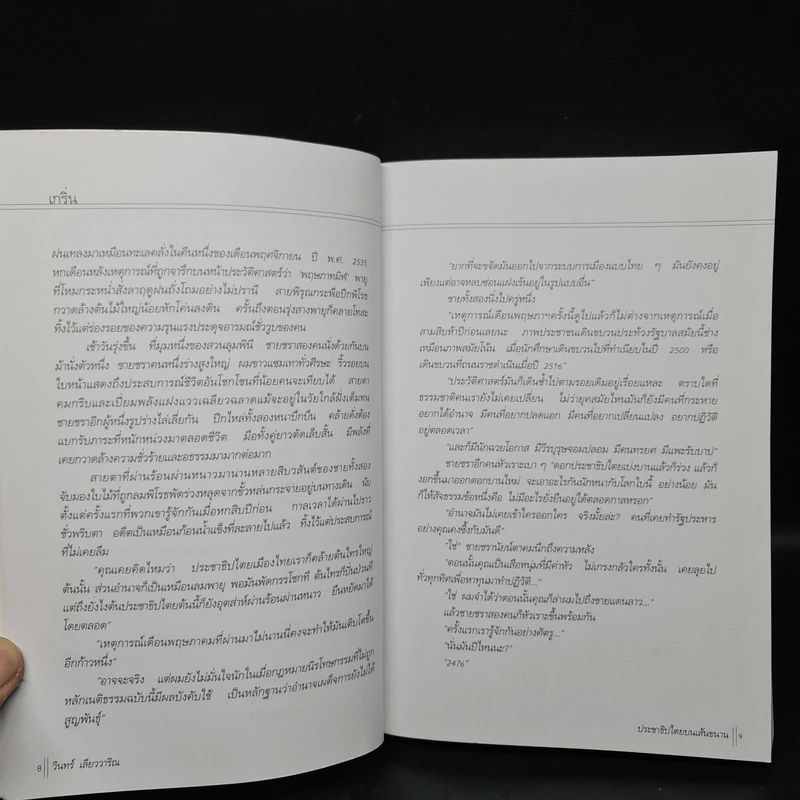 เกริ่น
ฝนเทลงมาเหมือนทะเลคลั่งในคืนหนึ่งของเดือนพฤศจิกายน ปี พ.ศ. 2535
หกเดือนหลังเหตุการณ์ที่ถูกจารึกบนหน้าประวัติศาสตร์ว่า 'พฤษภาทมิฬ' พายุ
ที่โหมกระหน่ำสั่งลาฤดูฝนถั่งโถมอย่างไม่ปรานี สายพิรุณกระพือปีกพิโรธ
กวาดล้างต้นไม้ใหญ่น้อยหักโค่นลงดิน ครั้นถึงตอนรุ่งสางพายุก็คลายโทสะ
ทิ้งไว้แต่ร่องรอยของความรุนแรงประดุจอารมณ์ชั่ววูบของคน
เช้าวันรุ่งขึ้น ที่มุมหนึ่งของสวนลุมพินี ชายชราสองคนนั่งด้วยกันบน
ม้านั่งตัวหนึ่ง ชายชราคนหนึ่งร่างสูงใหญ่ ผมขาวแซมเทาทั่วศีรษะ ริ้วรอยบน
ใบหน้าแสดงถึงประสบการณ์ชีวิตอันโชกโชนที่น้อยคนจะเทียบได้ สายตา
คมกริบและเปี่ยมพลังแฝงแววเฉลียวฉลาดแม้จะอยู่ในวัยใกล้ฝั่งเต็มทน
ชายชราอีกผู้หนึ่งรูปร่างไล่เลี่ยกัน ปีกไหล่ทั้งสองหนาบึกบึน คล้ายดั่งต้อง
แบกรับภาระที่หนักหน่วงมาตลอดชีวิต มือทั้งคู่ยาวตัดเล็บสั้น มีพลังที่
เคยกวาดล้างความชั่วร้ายและอธรรมมามากต่อมาก
สายตาที่ผ่านร้อนผ่านหนาวมานานหลายสิบวสันต์ของชายทั้งสอง
จับมองใบไม้ที่ถูกลมพิโรธพัดร่วงหลุดจากขั้วหล่นกระจายอยู่บนทางเดิน นับ
ตั้งแต่ครั้งแรกที่พวกเขารู้จักกันเมื่อหกสิบปีก่อน กาลเวลาได้ผ่านไปราว
ชั่วพริบตา อดีตเป็นเหมือนก้อนน้ำแข็งที่ละลายไปแล้ว ทิ้งไว้แต่ประสบการณ์
ที่ไม่เคยลืม
"คุณเคยคิดไหมว่า ประชาธิปไตยเมืองไทยเราก็คล้ายต้นไทรใหญ่
ต้นนั้น ส่วนอำนาจก็เป็นเหมือนลมพายุ พอมันพัดกรรโชกที ต้นไทรก็ปั่นป่วนที
แต่ถึงยังไงต้นประชาธิปไตยต้นนี้ก็ยังอุตส่าห์ผ่านร้อนผ่านหนาว ยืนหยัดมาได้
โดยตลอด"
"เหตุการณ์เดือนพฤษภาคมที่ผ่านมาไม่นานนี่คงจะทำให้มันเติบโตขึ้น
อีกก้าวหนึ่ง"
"อาจจะจริง แต่ผมยังไม่มั่นใจนักในเมื่อกฎหมายนิรโทษกรรมที่ไม่ถูก
หลักเนติธรรมฉบับนี้มีผลบังคับใช้ เป็นหลักฐานว่าอำนาจเผด็จการยังไม่ได้
สูญพันธุ์"
8 วินทร์ เลียววาริณ
"ยากที่จะขจัดมันออกไปจากระบบการเมืองแบบไทย ๆ มันยังคงอยู่
เพียงแต่อาจหลบซ่อนแฝงเร้นอยู่ในรูปแบบอื่น"
ชายทั้งสองนิ่งไปครู่หนึ่ง
"เหตุการณ์เดือนพฤษภาฯครั้งนี้ดูไปแล้วก็ไม่ต่างจากเหตุการณ์เมื่อ
สามสิบห้าปีก่อนเลยนะ ภาพประชาชนเดินขบวนประท้วงรัฐบาลสมัยนี้ช่าง
เหมือนภาพสมัยโน้น เมื่อนักศึกษาเดินขบวนไปที่ทำเนียบในปี 2500 หรือ
เดินขบวนที่ถนนราชดำเนินเมื่อปี 2516"
"ประวัติศาสตร์มันก็เดินซ้ำไปตามรอยเดิมอยู่เรื่อยแหละ ตราบใดที่
ธรรมชาติคนเรายังไม่เคยเปลี่ยน ไม่ว่ายุคสมัยไหนมันก็ยังมีคนที่กระหาย
อยากได้อำนาจ มีคนที่อยากปลดแอก มีคนที่อยากเปลี่ยนแปลง อยากปฏิวัติ
อยู่ตลอดเวลา"
"และก็มีนักฉวยโอกาส มีวีรบุรุษจอมปลอม มีคนทรยศ มีแพะรับบาป"
ชายชราอีกคนหัวเราะเบา ๆ "ดอกประชาธิปไตยเบ่งบานแล้วก็ร่วง แล้วก็
งอกขึ้นมาออกดอกบานใหม่ จะเอาอะไรกันนักหนากับโลกใบนี้ อย่างน้อย มัน
ก็ให้สัจธรรมข้อหนึ่งคือ ไม่มีอะไรยั่งยืนอยู่ได้ตลอดกาลหรอก"
"อำนาจมันไม่เคยเข้าใครออกใคร จริงมั้ยล่ะ? คนที่เคยทำรัฐประหาร
อย่างคุณคงซึ้งกับมันดี"
"ใช่" ชายชรานัยน์ตาคมนึกถึงความหลัง
"ตอนนั้นคุณเป็นเสือหนุ่มที่มีค่าหัว ไม่เกรงกลัวใครทั้งนั้น เคยลุยไป
ทั่วทุกทิศเพื่อหาทุนมาทำปฏิวัติ..."
"ใช่ ผมจำได้ว่าตอนนั้นคุณก็ล่าผมไปถึงชายแดนลาว..."
แล้วชายชราสองคนก็หัวเราะขึ้นพร้อมกัน
"ครั้งแรกเรารู้จักกันอย่างศัตรู..."
"นั่นมันปีไหนนะ?"
"2476"
ประชาธิปไตยบนเส้นขนาน 9